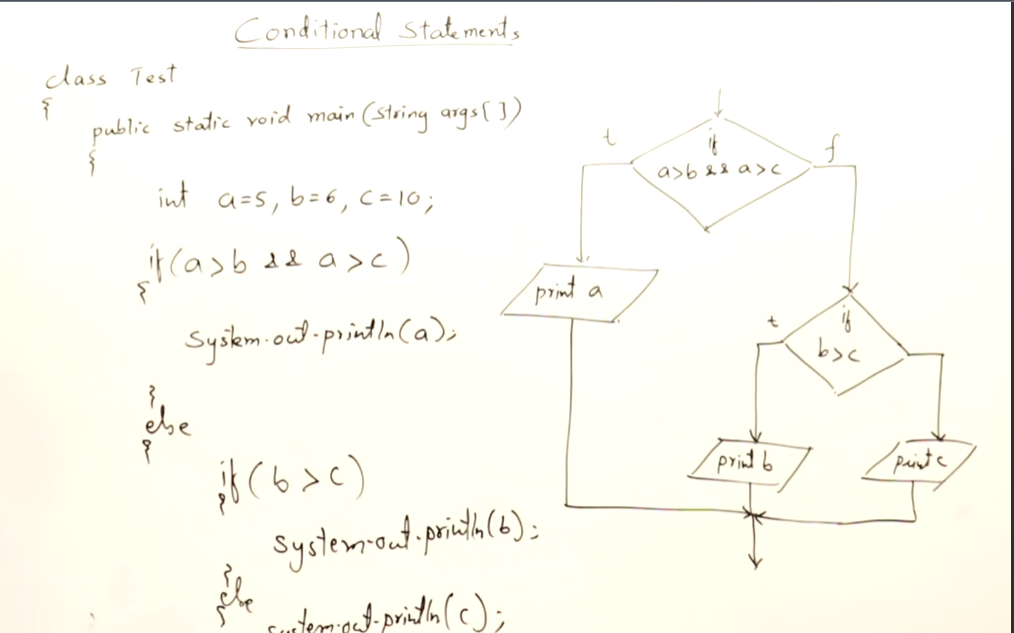 Conditional Statements
class Test
{
public static void main (String args[])
{
int a=5, b=6, c=10;
if (a>b && a>c)
{
System.out.println(a);
}
else
{
if (b>c)
{
System.out.println(b);
}
else
{
System.out.println(c);
t
if
a>b && a>c
f
print a
t
if
b>c
print b
print c